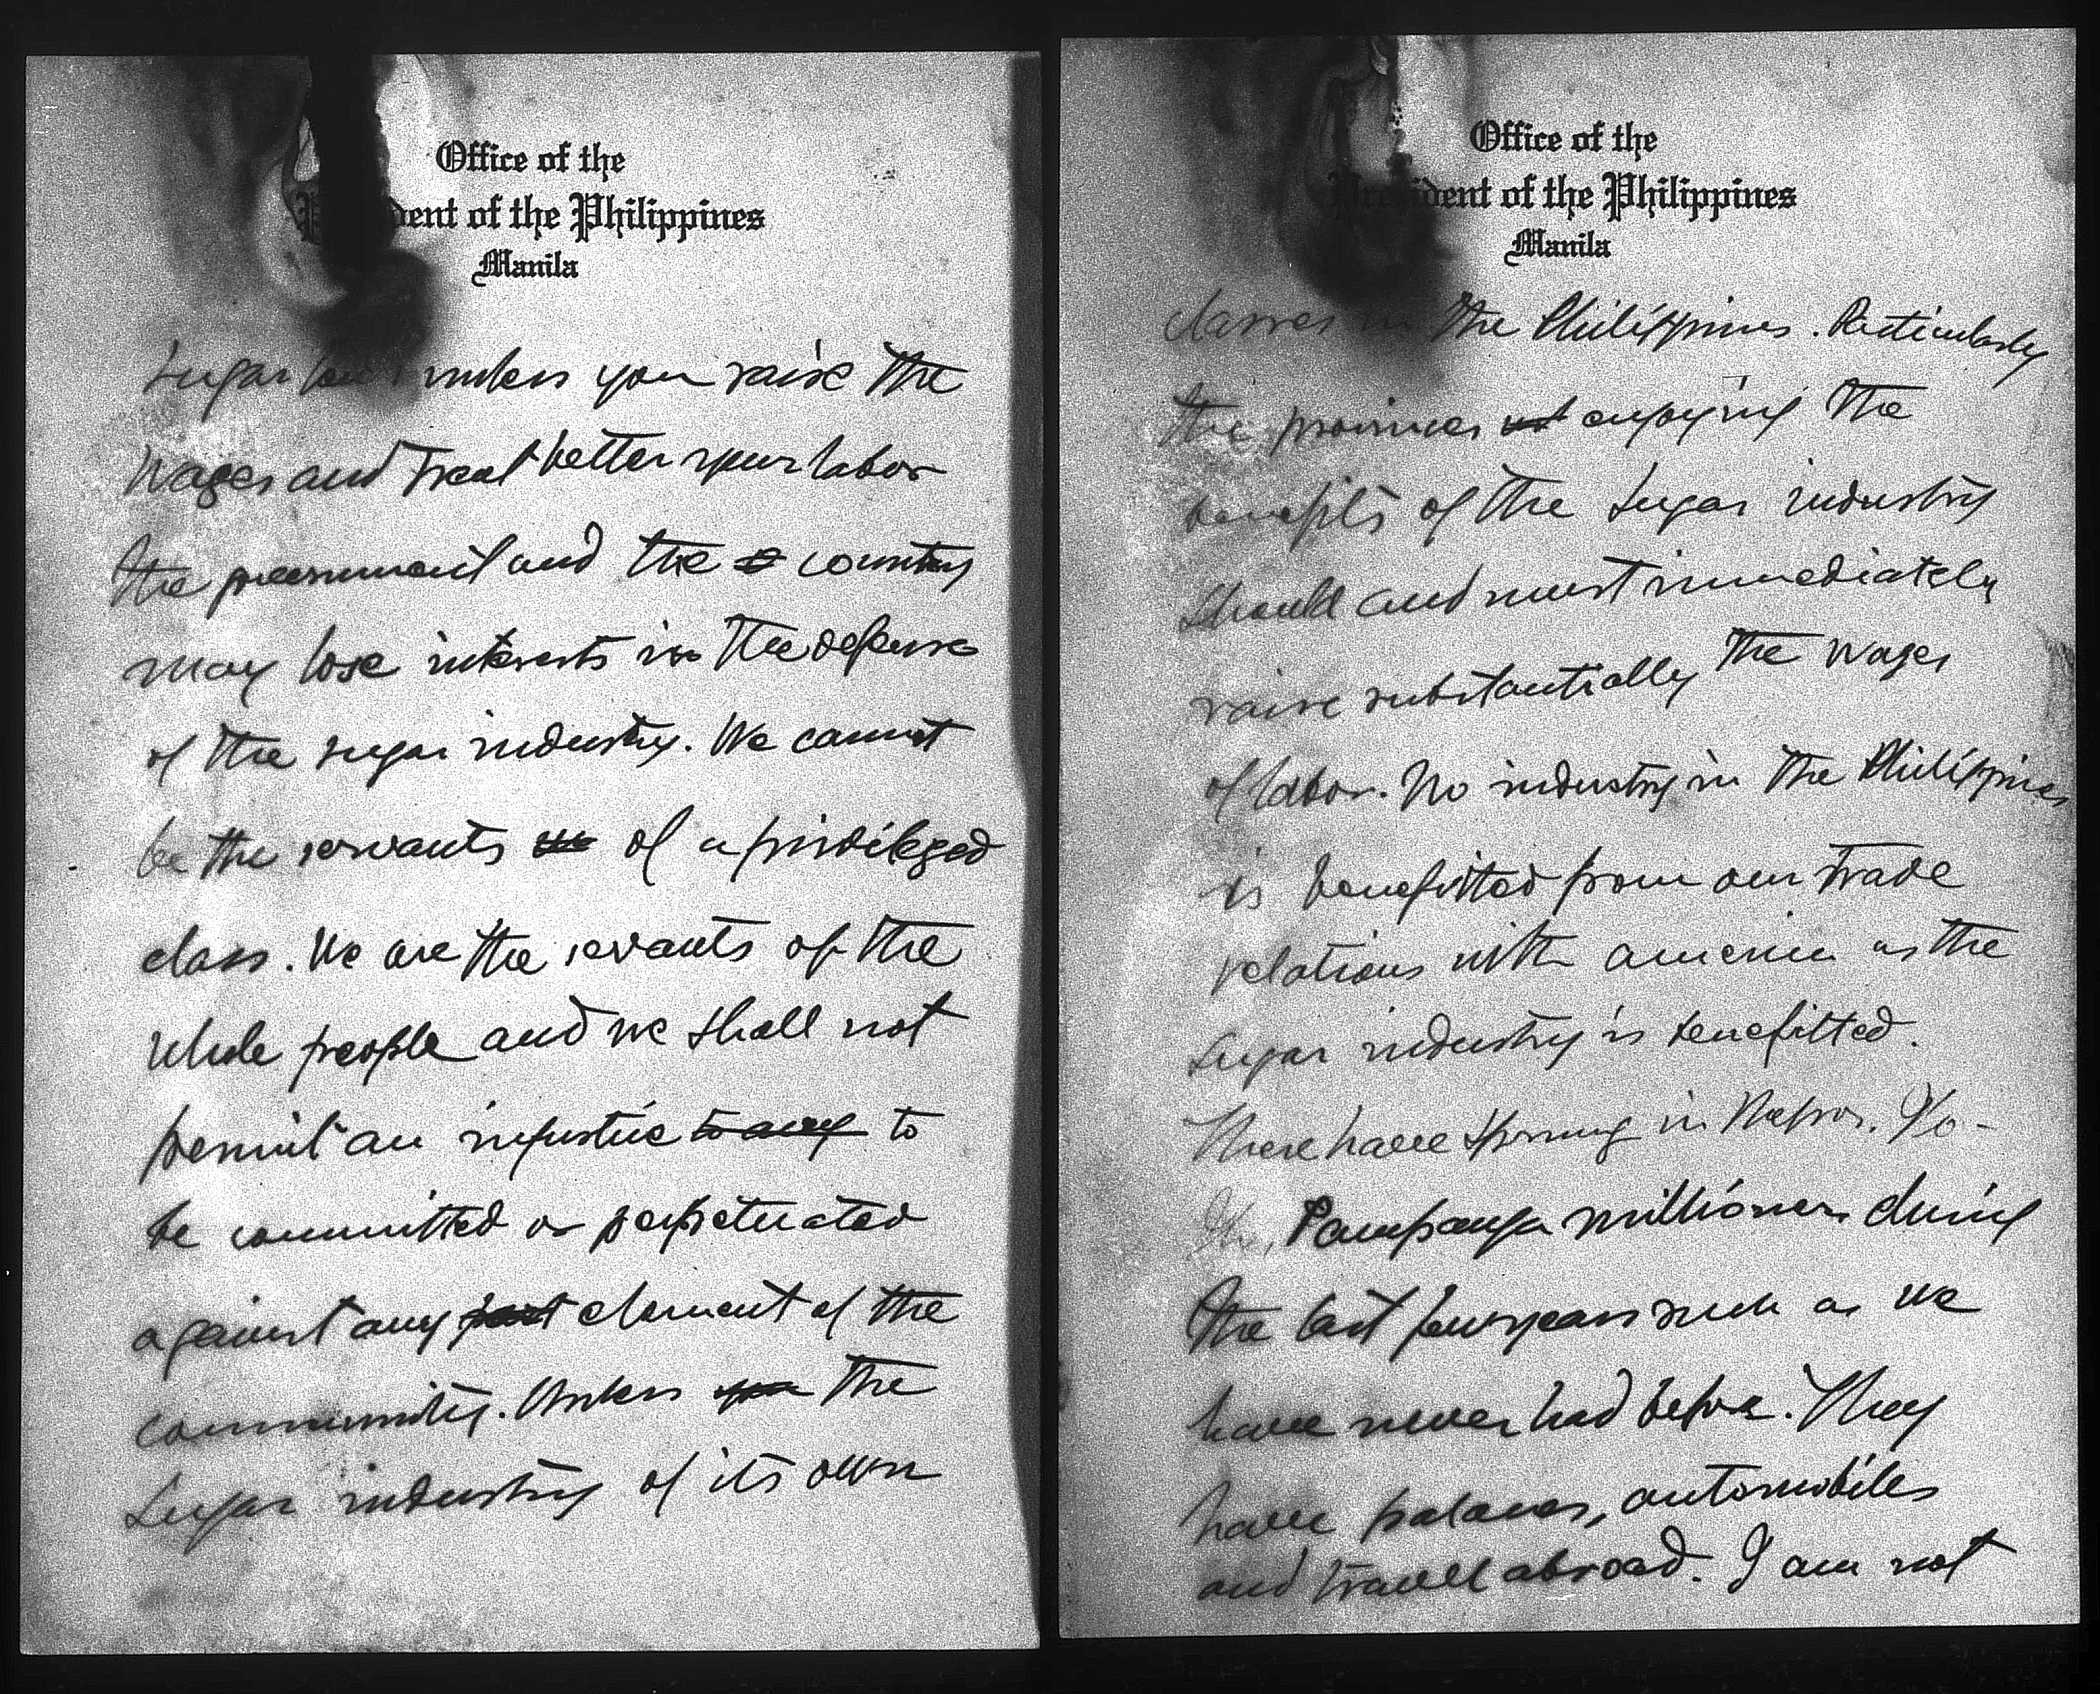 Office of the
President of the Philippines
Manila
Sugar unless you raise the
wages and treat better your labor
the government and the country
may lose interests in the defense
of the sugar industry. We cannot
be the servants of a privileged
class. We are the servants of the
whole people and we shall not
permit an injustice to any to
be committed or perpetuated
against any part element of the
community. Unless you the
sugar industry of its own
Office of the
President of the Philippines
Manila
classes in the Philippines. Particularly
the provinces enjoying the
benefits of the sugar industry
should and must immediately
raise substantially the wages
of labor. No industry in the Philippines
is benefitted from our trade
relations with america as the
sugar industry is benefitted.
There have sprung in Negros,
Pampanga millioners during
the last few years such as we
have never had before. They
have palaces, automobiles
and travell abroad. I am not